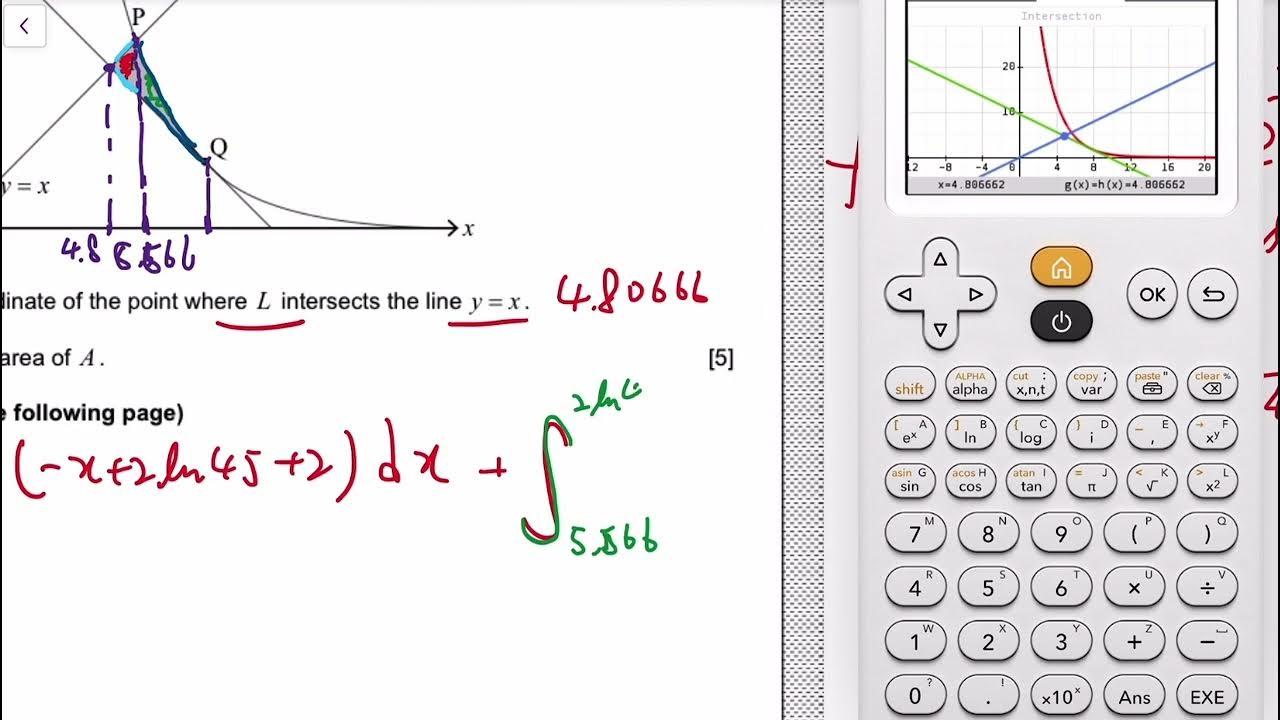 P
Q
y = x
x
4.8 5.566
dinate of the point where L intersects the line y = x. 4.80666
area of A. [5]
e following page)
(-x+2ln45+2) dx + ∫
2ln4
5.566
Intersection
20
10
12 -8 -4 0 4 8 12 16 20
x=4.806662 g(x)=h(x)=4.806662
OK
ALPHA cut : copy ; paste " clear %
shift alpha x,n,t var
[ A ] B { C } D _ E → F
eˣ ln log i , xʸ
asin G acos H atan I = J < K > L
sin cos tan π √ x²
M N O P Q
7 8 9 ( )
R S T U V
4 5 6 × ÷
W X Y Z
1 2 3 + −
? !
0 . ×10ˣ Ans EXE